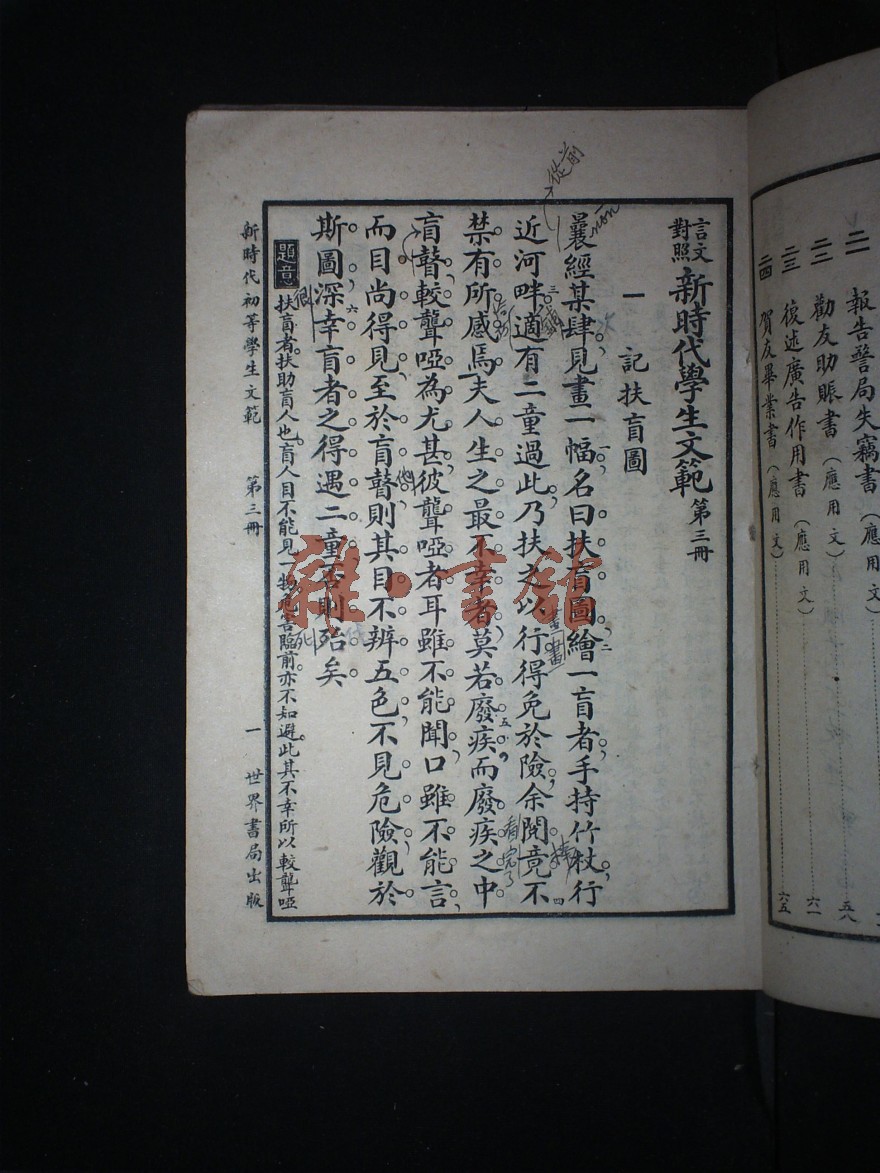 言文對照 新時代學生文範 第三冊
一 記扶盲圖
曩經某肆，見畫一幅，名曰扶盲圖，繪一盲者，手持竹杖，行
近河畔，適有二童過此，乃扶之以行，得免於險，余閱竟，不
禁有所感焉，夫人生之最不幸者，莫若廢疾，而廢疾之中，
盲瞽較聾啞為尤甚，彼聾啞者，耳雖不能聞，口雖不能言，
而目尚得見，至於盲瞽，則其目不辨五色，不見危險，觀於
斯圖，深幸盲者之得遇二童，否則殆矣。
題意 扶盲者，扶助盲人也。盲人目不能見一物，危害臨前，亦不知避。此其不幸，所以較聾啞
新時代初等學生文範 第三冊 一 世界書局出版
二一 報告警局失竊書（應用文）
二二 勸友助賑書（應用文） 五八
二三 復述廣告作用書（應用文） 六一
二四 賀友畢業書（應用文） 六五
從前
看完了
他
死
畫
雜·書館